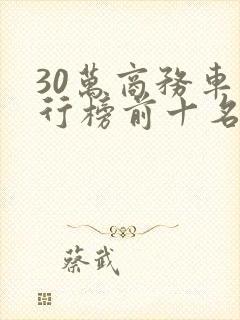 30萬商務車
行榜前十名
蔡武